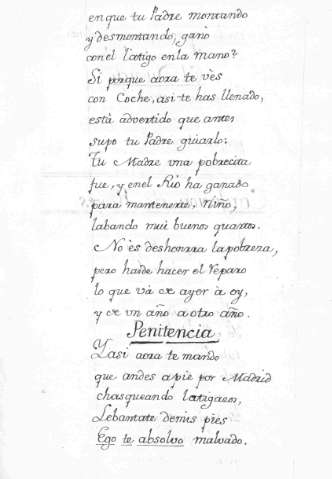 en que tu Padre montando
y desmontando, ganó
con èl latigo en la mano?
Si porque aora te vès
con Coche, asi te has llenado,
està advertido que antes
supo tu Padre guiarlo:
Tu Madre vna pobrecita
fue, y en el Rio ha ganado
para mantenerte, Niño,
labando mui buenos quartos.
No es deshonrra la pobreza,
pero haide hacer el reparo
lo que và de ayer à oy,
y de vn año a otro año.
Penitencia
Y asi aora te mando
que andes a pie por Madrid
chasqueando latigazos,
Lebantate de mis pies
Ego te absolvo malvado.